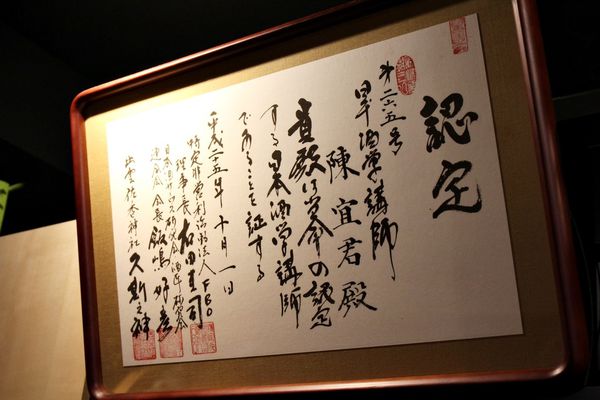 認定
第二六五号
日本酒学講師
陳宜君殿
貴殿は当会の認定
する日本酒学講師
であることを証する
平成二五年十月一日
特定非営利活動法人FBO
理事長 右田圭司
連合会 会長 飯嶋
出雲佐香神社 久斯之神